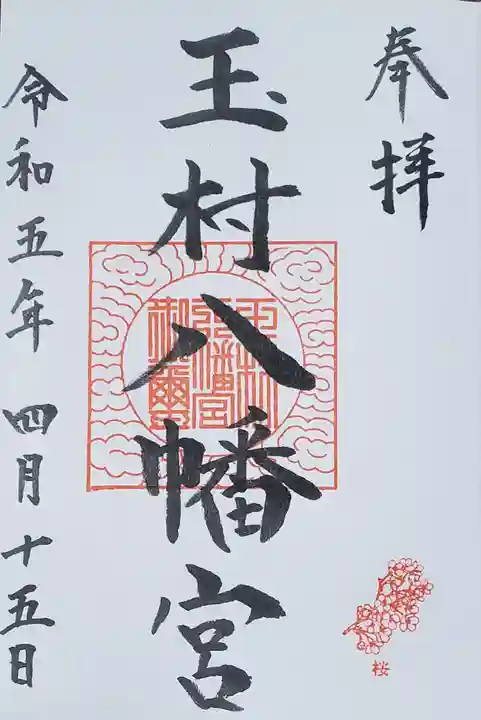 奉拝
玉村八幡宮
玉村
八幡宮
御璽
令和五年 四月十五日
桜